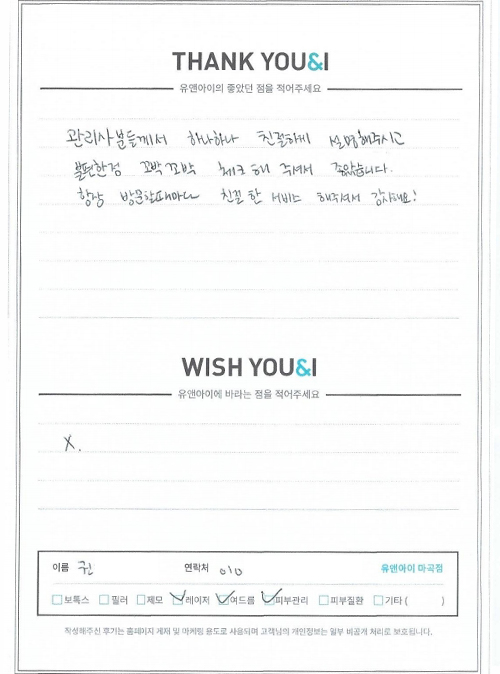 THANK YOU&I
유앤아이의 좋았던 점을 적어주세요
관리사분들께서 하나하나 친절하게 설명해주시고
불편한점 꼬박꼬박 체크해 주셔서 좋았습니다.
항상 방문할때마다 친절한 서비스 해주셔서 감사해요!
WISH YOU&I
유앤아이에 바라는 점을 적어주세요
X.
이름 권 연락처 010 유앤아이 마곡점
보톡스 필러 제모 레이저 여드름 피부관리 피부질환 기타 ( )
작성해주신 후기는 홈페이지 게재 및 마케팅 용도로 사용되며 고객님의 개인정보는 일부 비공개 처리로 보호됩니다.